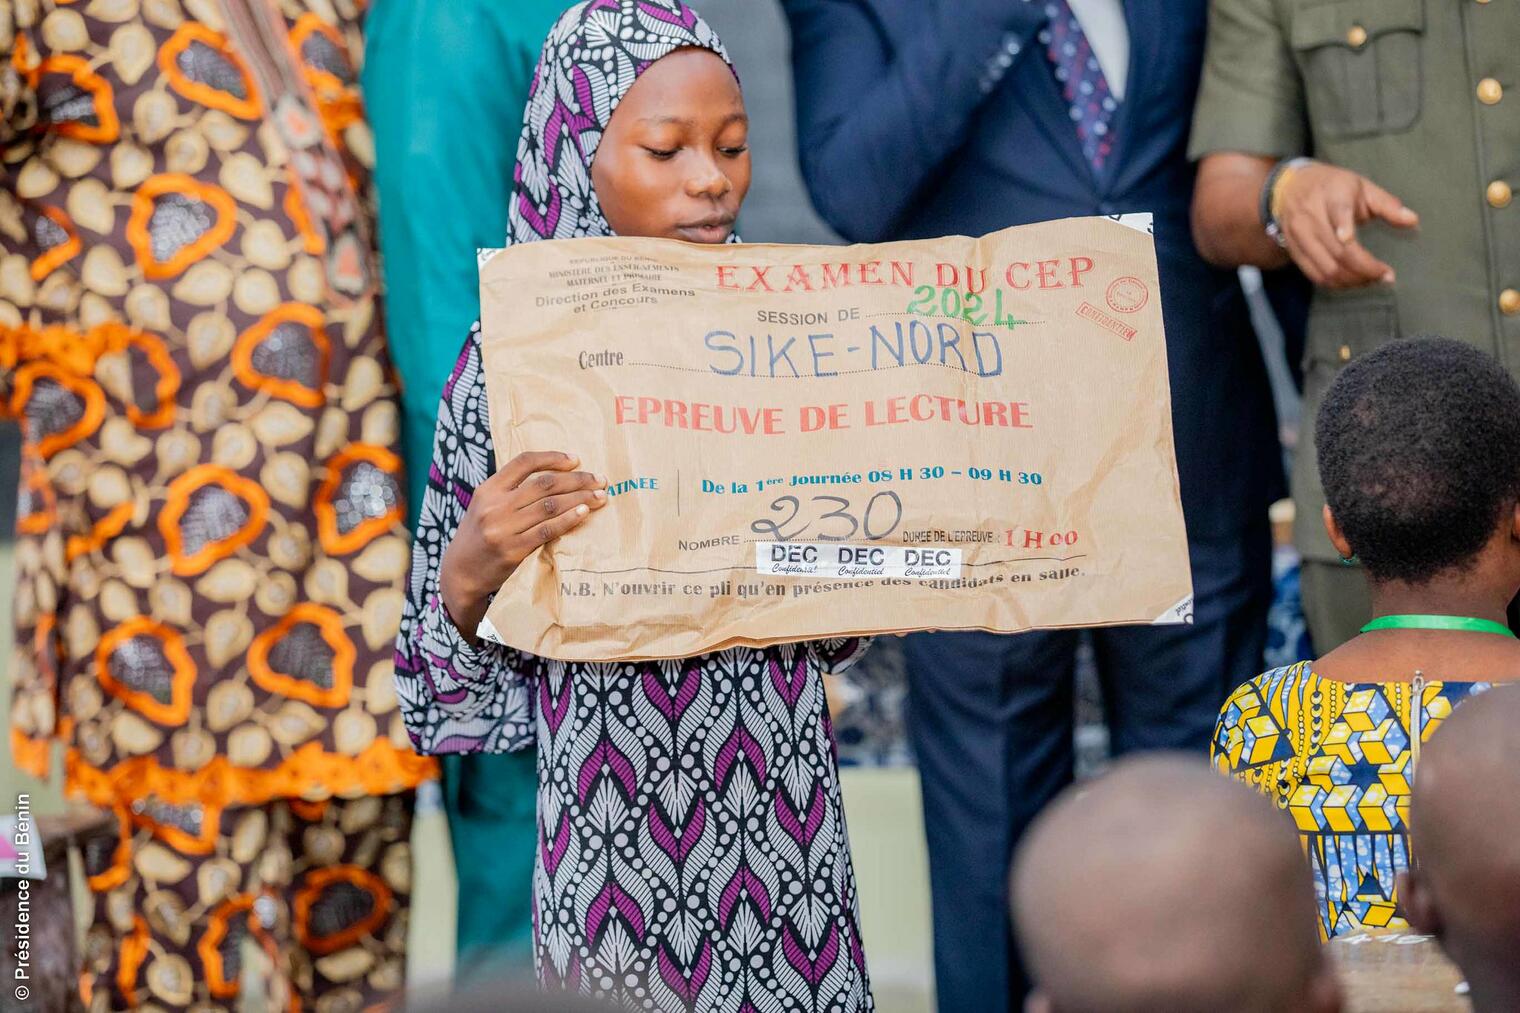 REPUBLIQUE DU BENIN
MINISTERE DES ENSEIGNEMENTS
MATERNEL ET PRIMAIRE
Direction des Examens
et Concours
EXAMEN DU CEP
SESSION DE 2024
CONFIDENTIEL
Centre SIKE-NORD
EPREUVE DE LECTURE
ATINEE De la 1ère Journée 08 H 30 – 09 H 30
NOMBRE 230 DUREE DE L'EPREUVE : 1 H 00
DEC DEC DEC
Confidentiel Confidentiel Confidentiel
N.B. N'ouvrir ce pli qu'en présence des candidats en salle.
© Présidence du Bénin